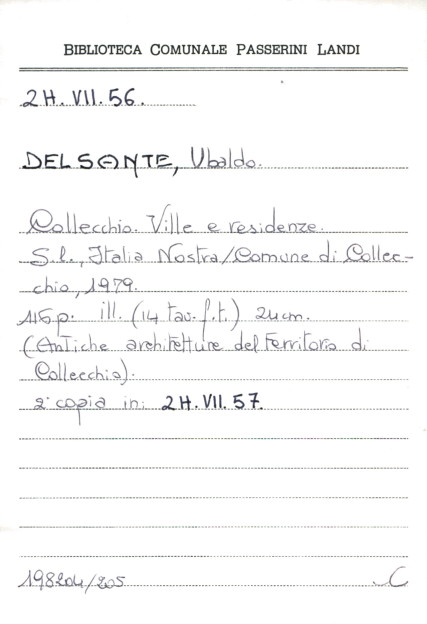 BIBLIOTECA COMUNALE PASSERINI LANDI
2H. VII. 56.
DELSANTE, Ubaldo.
Collecchio. Ville e residenze.
S.l., Italia Nostra/Comune di Collec-
chio, 1979.
116 p. ill. (14 tav. f.t.) 24 cm.
(Antiche architetture del territorio di
Collecchio).
2ª copia in: 2H. VII. 57.
198204/205
C